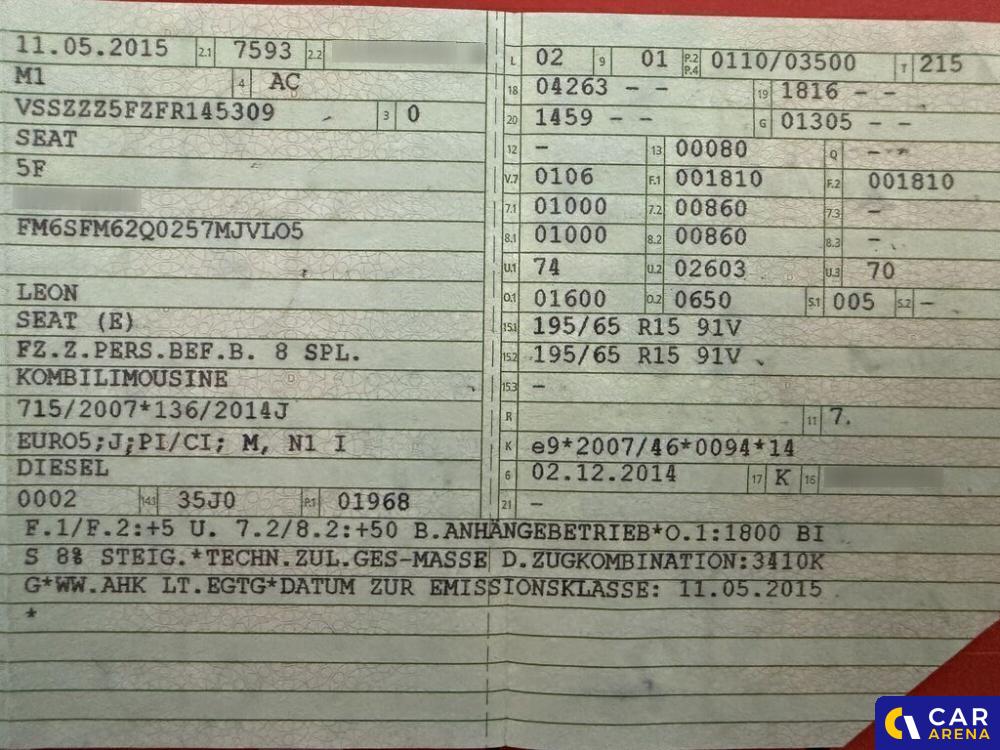 11.05.2015 2.1 7593 2.2
M1 4 AC
VSSZZZ5FZFR145309 3 0
SEAT
5F
FM6SFM62Q0257MJVLO5
LEON
SEAT (E)
FZ.Z.PERS.BEF.B. 8 SPL.
KOMBILIMOUSINE
715/2007*136/2014J
EURO5;J;PI/CI; M, N1 I
DIESEL
0002 14.1 35J0 P.1 01968
L 02 9 01 P.2 P.4 0110/03500 T 215
18 04263 – – 19 1816 – –
20 1459 – – G 01305 – –
12 – 13 00080 Q –
V.7 0106 F.1 001810 F.2 001810
7.1 01000 7.2 00860 7.3 –
8.1 01000 8.2 00860 8.3 –
U.1 74 U.2 02603 U.3 70
O.1 01600 O.2 0650 S.1 005 S.2 –
15.1 195/65 R15 91V
15.2 195/65 R15 91V
15.3 –
R 11 7.
K e9*2007/46*0094*14
6 02.12.2014 17 K 16
21 –
F.1/F.2:+5 U. 7.2/8.2:+50 B.ANHÄNGEBETRIEB*O.1:1800 BI
S 8% STEIG.*TECHN.ZUL.GES-MASSE D.ZUGKOMBINATION:3410K
G*WW.AHK LT.EGTG*DATUM ZUR EMISSIONSKLASSE: 11.05.2015
*
CAR
ARENA